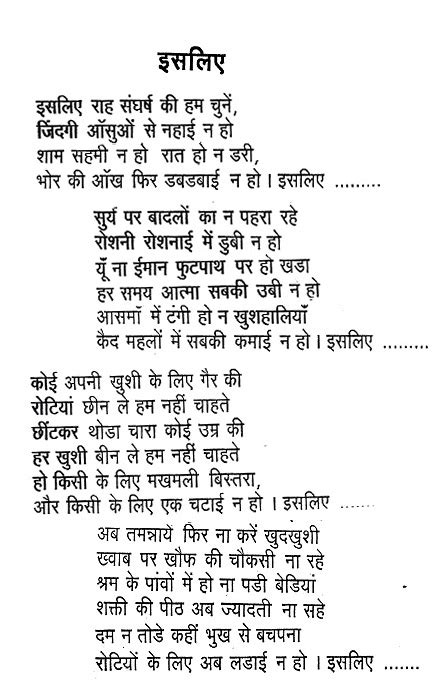 इसलिए
इसलिए राह संघर्ष की हम चुनें,
जिंदगी ऑसुओं से नहाई न हो
शाम सहमी न हो रात हो न डरी,
भोर की ऑख फिर डबडबाई न हो । इसलिए .........
सुर्य पर बादलों का न पहरा रहे
रोशनी रोशनाई में डुबी न हो
यूँ ना ईमान फुटपाथ पर हो खडा
हर समय आत्मा सबकी उबी न हो
आसमाँ में टंगी हो न खुशहालियाँ
कैद महलों में सबकी कमाई न हो । इसलिए .........
कोई अपनी खुशी के लिए गैर की
रोटियां छीन ले हम नहीं चाहते
छींटकर थोडा चारा कोई उम्र की
हर खुशी बीन ले हम नहीं चाहते
हो किसी के लिए मखमली बिस्तरा,
और किसी के लिए एक चटाई न हो । इसलिए .......
अब तमन्नायें फिर ना करें खुदखुशी
ख्वाब पर खौफ की चौकसी ना रहे
श्रम के पांवों में हो ना पडी बेडियां
शक्ती की पीठ अब ज्यादती ना सहे
दम न तोडे कहीं भुख से बचपना
रोटियों के लिए अब लडाई न हो । इसलिए .......